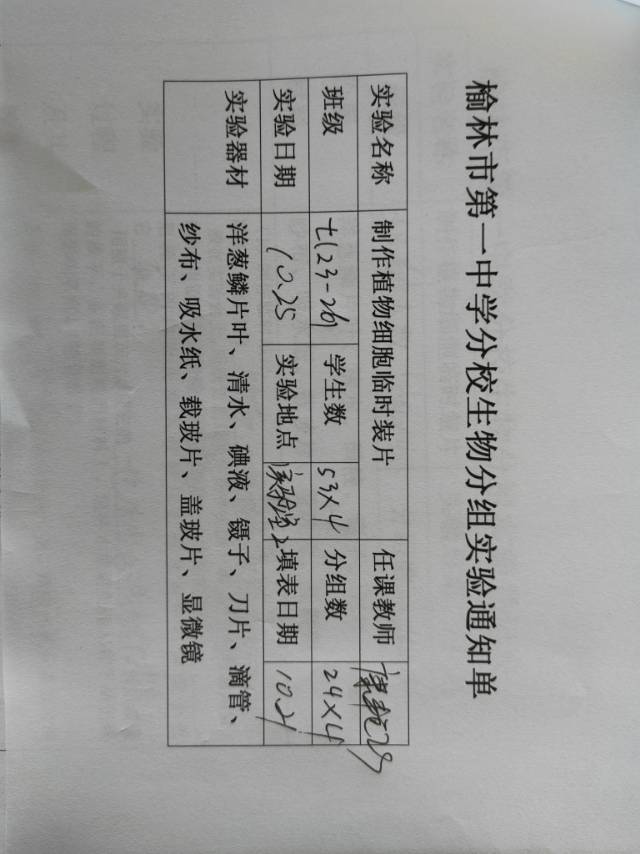 榆林市第一中学分校生物分组实验通知单
实验名称 制作植物细胞临时装片 任课教师
班级 七(23-26) 学生数 53×4 分组数 24×4
实验日期 10.25 实验地点 实验室2 填表日期 10.21
实验器材 洋葱鳞片叶、清水、碘液、镊子、刀片、滴管、
纱布、吸水纸、载玻片、盖玻片、显微镜